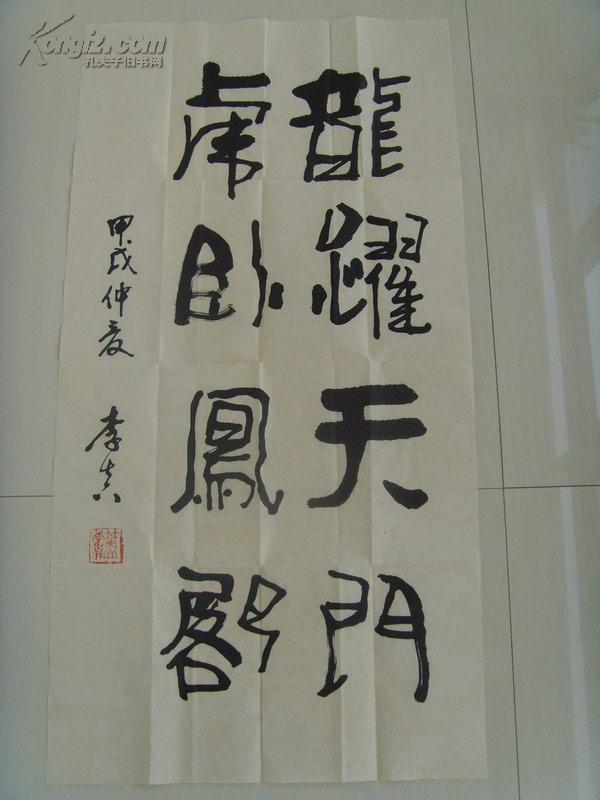 龍躍天門
虎卧鳳閣
甲戌仲夏 李真
Kongfz.com
孔夫子旧书网